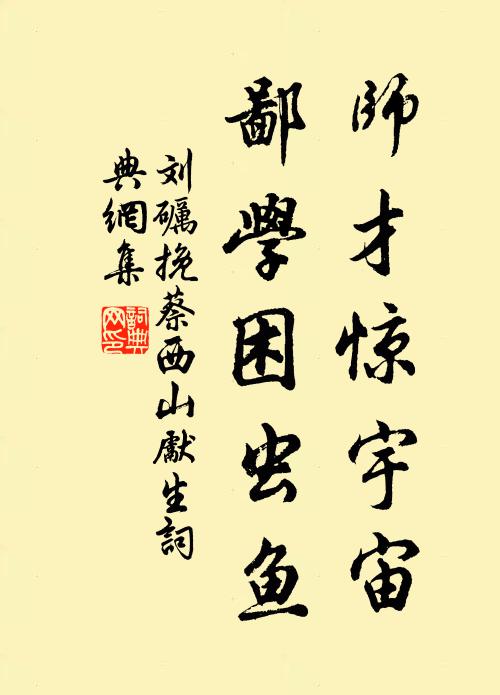 師才惊宇宙
鄙學困虫鱼
刘礪挽蔡西山獻生詞
典網集
詞典
网印